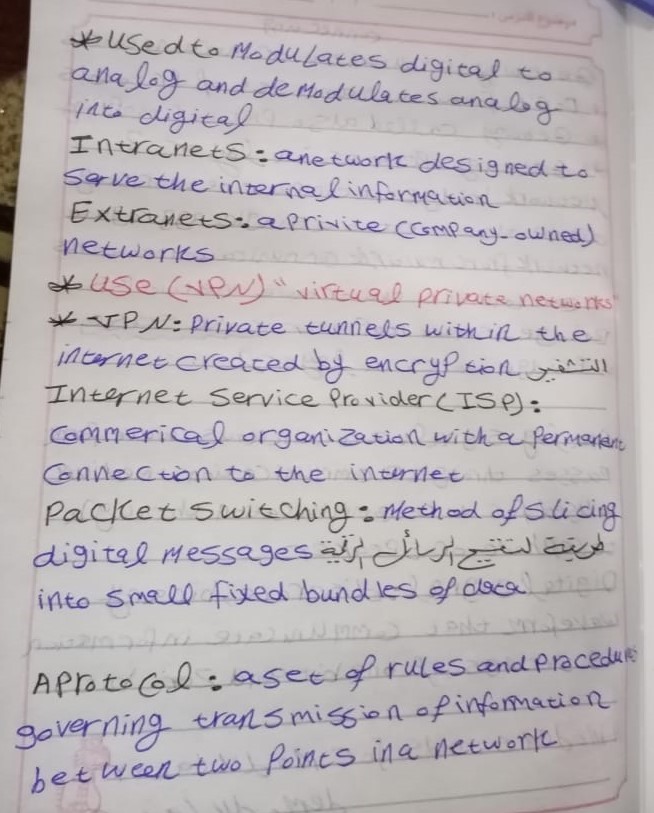 * Used to Modulates digital to
analog and deModulates analog
into digital
Intranets: anetwork designed to
Serve the internal information
Extranets: a privite (company-owned)
networks
* Use (VPN) "virtual private networks
* VPN: Private tunnels within the
internet created by encryption التشفير
Internet Service Provider (ISP):
Commerical organization with a Permanent
Connection to the internet
Packet Switching: Method of Slicing
digital Messages طريقة لتقطيع الرسائل
into small fixed bundles of data
A Protocol: a set of rules and procedure
governing transmission of information
between two Points in a network